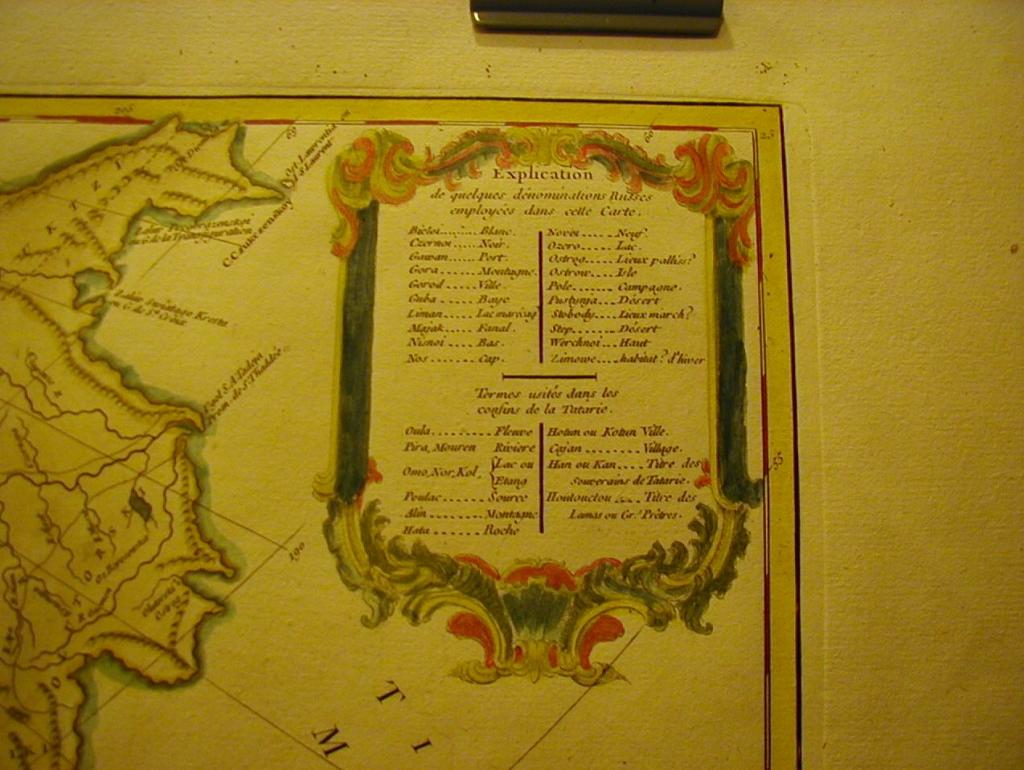 Explication
de quelques dénominations Russes
employées dans cette Carte.
Bieloi....... Blanc.
Czernoi..... Noir.
Gawan..... Port.
Gora...... Montagne.
Gorod...... Ville.
Guba...... Baye
Liman...... Lac marécag
Majak..... Fanal.
Nisnoi..... Bas.
Nos........ Cap.
Novoi...... Neuf.
Ozero..... Lac.
Ostrog.... Lieux palliss?
Ostrow.... Isle
Pole...... Campagne.
Pustynja... Désert
Slobody... Lieux march?
Step....... Désert
Werchnoi... Haut
Zimowe.... habitat? d'hiver
Termes usités dans les
confins de la Tatarie.
Oula........ Fleuve
Pira, Mouren Riviere
Omo, Nor, Kol, Lac ou
Etang
Poulac....... Source
Alin........ Montagne
Hata ....... Roche
Hotun ou Kotun Ville.
Cajan....... Village.
Han ou Kan.... Titre des
Souverains de Tatarie.
Houtouctou .... Titre des
Lamas ou Gr.s Prêtres.
C. Czukczenskoy
ou de la Transfiguration
ou G. de S.te Croix
190
25
T
I
M